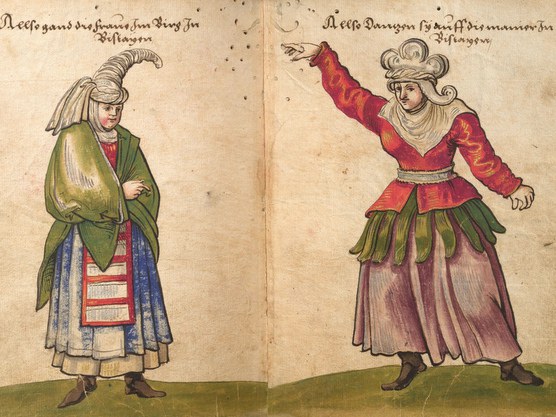 Allso gand die frauw Im Birg In
Bisiayen
Allso Danzen sy auff die manier In
Bisiayen